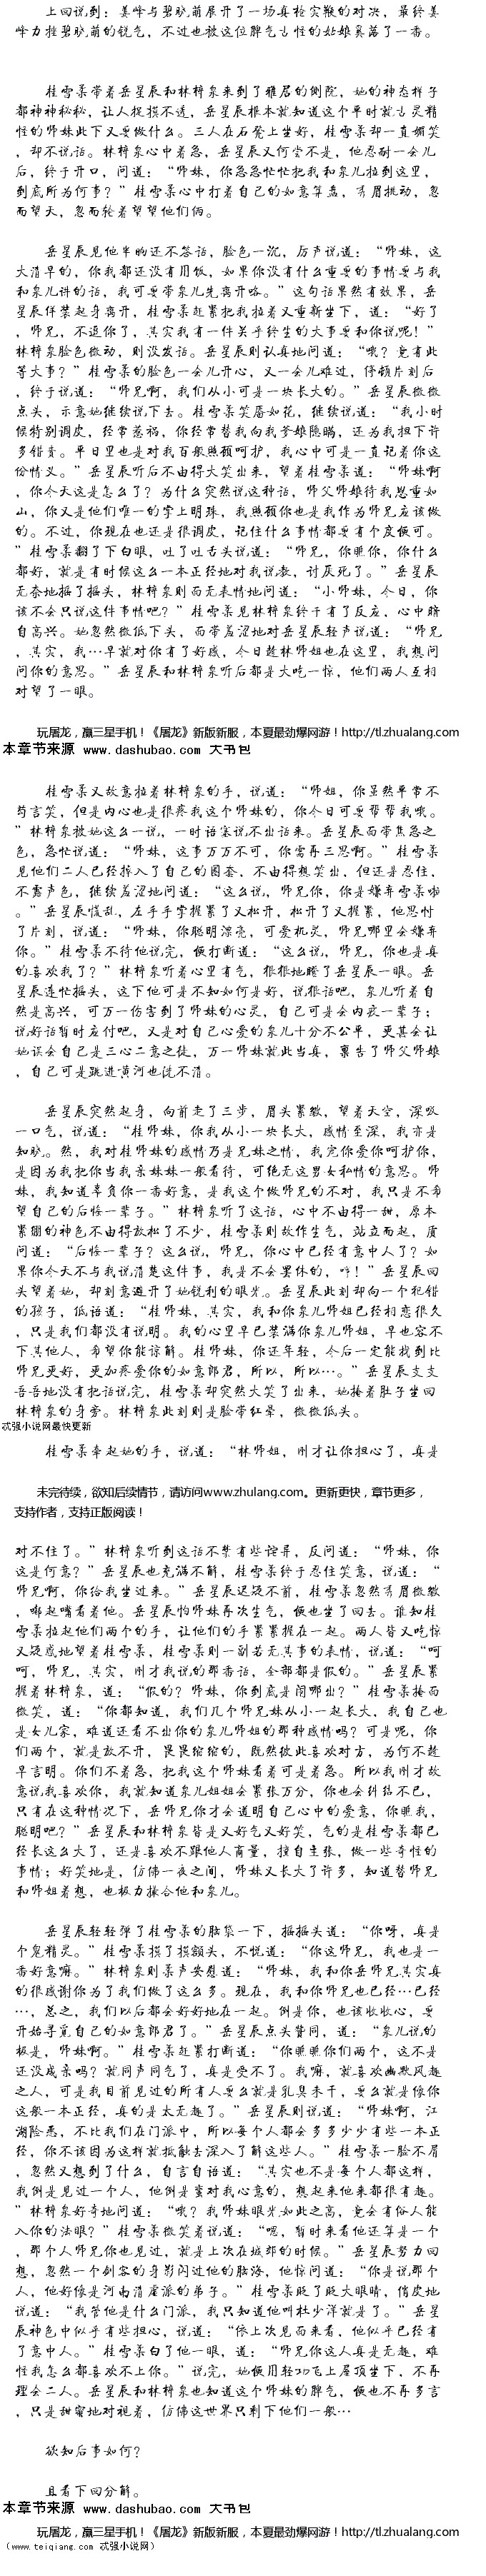 上回说到：姜峰与碧晓萌展开了一场真枪实鞭的对决，最终姜
峰力挫碧晓萌的锐气，不过也被这位脾气古怪的姑娘奚落了一番。
桂雪柔带着岳星辰和林梓泉来到了雅君的侧院，她的神态样子
都神神秘秘，让人捉摸不透，岳星辰根本就知道这个平时就古灵精
怪的师妹此下又要做什么。三人在石凳上坐好，桂雪柔却一直嬉笑
，却不说话。林梓泉心中着急，岳星辰又何尝不是，他忍耐一会儿
后，终于开口，问道：“师妹，你急急忙忙把我和泉儿拉到这里，
到底所为何事？”桂雪柔心中打着自己的如意算盘，秀眉挑动，忽
而望天，忽而轮着望望他们俩。
岳星辰见他半晌还不答话，脸色一沉，厉声说道：“师妹，这
大清早的，你我都还没有用饭，如果你没有什么重要的事情要与我
和泉儿讲的话，我可要带泉儿先离开咯。”这句话果然有效果，岳
星辰佯装起身离开，桂雪柔赶紧把我拉着又重新坐下，道：“好了
，师兄，不逗你了，其实我有一件关乎终生的大事要和你说呢！”
林梓泉脸色微动，则没发话。岳星辰则认真地问道：“哦？竟有此
等大事？”桂雪柔的脸色一会儿开心，又一会儿难过，停顿片刻后
，终于说道：“师兄啊，我们从小可是一块长大的。”岳星辰微微
点头，示意她继续说下去。桂雪柔笑靥如花，继续说道：“我小时
候特别调皮，经常惹祸，你经常替我向我爹娘隐瞒，还为我担下许
多错责。平日里也是对我百般照顾呵护，我心中可是一直记着你这
份情义。”岳星辰听后不由得大笑出来，望着桂雪柔道：“师妹啊
，你今天这是怎么了？为什么突然说这种话，师父师娘待我恩重如
山，你又是他们唯一的掌上明珠，我照顾你也是我作为师兄应该做
的。不过，你现在也还是很调皮，记住什么事情都要有个度候可。
”桂雪柔翻了下白眼，吐了吐舌头说道：“师兄，你瞧你，你什么
都好，就是有时候这么一本正经地对我说教，讨厌死了。”岳星辰
无奈地摇了摇头，林梓泉则面无表情地问道：“小师妹，今日，你
该不会只说这件事情吧？”桂雪柔见林梓泉终于有了反应，心中暗
自高兴。她忽然微低下头，面带羞涩地对岳星辰轻声说道：“师兄
，其实，我…早就对你有了好感，今日趁林师姐也在这里，我想问
问你的意思。”岳星辰和林梓泉听后都是大吃一惊，他们两人互相
对望了一眼。
玩屠龙，赢三星手机！《屠龙》新版新服，本夏最劲爆网游！http://tl.zhualang.com
本章节来源 www.dashubao.com 大书包
桂雪柔又故意拉着林梓泉的手，说道：“师姐，你虽然平常不
苟言笑，但是内心也是很疼我这个师妹的，你今日可要帮帮我哦。
”林梓泉被她这么一说，一时语塞说不出话来。岳星辰面带焦急之
色，急忙说道：“师妹，这事万万不可，你需再三思啊。”桂雪柔
见他们二人已经掉入了自己的圈套，不由得想笑出，但还是忍住，
不露声色，继续羞涩地问道：“这么说，师兄你，你是嫌弃雪柔啦
。”岳星辰慌乱，左手手掌握紧了又松开，松开了又握紧，他思忖
了片刻，说道：“师妹，你聪明漂亮，可爱机灵，师兄哪里会嫌弃
你。”桂雪柔不待他说完，便打断道：“这么说，师兄，你也是真
的喜欢我了？”林梓泉听着心里有气，狠狠地瞪了岳星辰一眼。岳
星辰连忙摇头，这下他可是不知如何是好，说狠话吧，泉儿听着自
然是高兴，可万一伤害到了师妹的心灵，自己可是会内疚一辈子；
说好话暂时应付吧，又是对自己心爱的泉儿十分不公平，更甚会让
她误会自己是三心二意之徒，万一师妹就此当真，禀告了师父师娘
，自己可是跳进黄河也洗不清。
岳星辰突然起身，向前走了三步，眉头紧皱，望着天空，深吸
一口气，说道：“桂师妹，你我从小一块长大，感情至深，我亦是
知晓。然，我对桂师妹的感情乃是兄妹之情，我宠你爱你呵护你，
是因为我把你当我亲妹妹一般看待，可绝无这男女私情的意思。师
妹，我知道辜负你一番好意，是我这个做师兄的不对，我只是不希
望自己的后悔一辈子。”林梓泉听了这话，心中不由得一甜，原本
紧绷的神色不由得放松了不少，桂雪柔则故作生气，站立而起，质
问道：“后悔一辈子？这么说，师兄，你心中已经有意中人了？如
果你今天不与我说清楚这件事，我是不会罢休的，哼！”岳星辰回
头望着她，却刻意避开了她锐利的眼光。岳星辰此刻却向一个犯错
的孩子，低语道：“桂师妹，其实，我和你泉儿师姐已经相恋很久
，只是我们都没有说明。我的心里早已装满你泉儿师姐，早也容不
下其他人，希望你能谅解。桂师妹，你还年轻，今后一定能找到比
师兄更好，更加疼爱你的如意郎君，所以，所以…。”岳星辰支支
吾吾地没有把话说完，桂雪柔却突然大笑了出来，她捂着肚子坐回
林梓泉的身旁。林梓泉此刻则是脸带红晕，微微低头。
忒强小说网最快更新
桂雪柔牵起她的手，说道：“林师姐，刚才让你担心了，真是
未完待续，欲知后续情节，请访问www.zhulang.com。更新更快，章节更多，
支持作者，支持正版阅读！
对不住了。”林梓泉听到这话不禁有些诧异，反问道：“师妹，你
这是何意？”岳星辰也充满不解，桂雪柔终于忍住笑意，说道：“
师兄啊，你给我坐过来。”岳星辰迟疑不前，桂雪柔忽然秀眉微皱
，嘟起嘴看着他。岳星辰怕师妹再次生气，便也坐了回去。谁知桂
雪柔拉起他们两个的手，让他们的手紧紧握在一起。两人皆又吃惊
又疑惑地望着桂雪柔，桂雪柔则一副若无其事的表情，说道：“呵
呵，师兄，其实，刚才我说的那番话，全部都是假的。”岳星辰紧
握着林梓泉，道：“假的？师妹，你到底是闹哪出？”桂雪柔接而
微笑，道：“你都知道，我们几个师兄妹从小一起长大，我自己也
是女儿家，难道还看不出你的泉儿师姐的那种感情吗？可是呢，你
们两个，就是放不开，畏畏缩缩的，既然彼此喜欢对方，为何不趁
早言明。你们不着急，把我这个师妹看着可是着急。所以我刚才故
意说我喜欢你，我就知道泉儿姐姐会紧张万分，你也会纠结不已，
只有在这种情况下，岳师兄你才会道明自己心中的爱意，你瞧我，
聪明吧？”岳星辰和林梓泉皆是又好气又好笑，气的是桂雪柔都已
经长这么大了，还是喜欢不跟他人商量，擅自主张，做一些奇怪的
事情；好笑地是，仿佛一夜之间，师妹又长大了许多，知道替师兄
和师姐着想，也极力撮合他和泉儿。
岳星辰轻轻弹了桂雪柔的脑袋一下，摇摇头道：“你呀，真是
个鬼精灵。”桂雪柔摸了摸额头，不悦道：“你这师兄，我也是一
番好意嘛。”林梓泉则柔声安慰道：“师妹，我和你岳师兄其实真
的很感谢你为了我们做了这么多。现在，我和你师兄也已经…已经
…，总之，我们以后都会好好地在一起。倒是你，也该收收心，要
开始寻觅自己的如意郎君了。”岳星辰点头赞同，道：“泉儿说的
极是，师妹啊。”桂雪柔赶紧打断道：“你瞧瞧你们两个，这不是
还没成亲吗？就同声同气了，真是受不了。我嘛，就喜欢幽默风趣
之人，可是我目前见过的所有人要么就是乳臭未干，要么就是像你
这般一本正经，真的是太无趣了。”岳星辰则说道：“师妹啊，江
湖险恶，不比我们在门派中，所以每个人都会多多少少有些一本正
经，你不该因为这样就抵触去深入了解这些人。”桂雪柔一脸不屑
，忽然又想到了什么，自言自语道：“其实也不是每个人都这样，
我倒是见过一个人，他倒是蛮对我心意的，想起来他来都很有趣。
”林梓泉好奇地问道：“哦？我师妹眼光如此之高，竟会有俗人能
入你的法眼？”桂雪柔微笑着说道：“嗯，暂时来看他还算是一个
，那个人师兄你也见过，就是上次在城郊的时候。”岳星辰努力回
想，忽然一个剑客的身影闪过他的脑海，他惊问道：“你是说那个
人，他好像是河南清崖派的弟子。”桂雪柔眨了眨大眼睛，俏皮地
说道：“我管他是什么门派，我只知道他叫杜少洋就是了。”岳星
辰神色中似乎有些担心，说道：“依上次见面来看，他似乎已经有
了意中人。”桂雪柔白了他一眼，道：“师兄你这人真是无趣，难
怪我怎么都喜欢不上你。”说完，她便用轻功飞上屋顶坐下，不再
理会二人。岳星辰和林梓泉也知道这个师妹的脾气，便也不再多言
，只是甜蜜地对视着，仿佛这世界只剩下他们一般…
欲知后事如何？
且看下回分解。
本章节来源 www.dashubao.com 大书包
玩屠龙，赢三星手机！《屠龙》新版新服，本夏最劲爆网游！http://tl.zhualang.com
（www.teiqiang.com 忒强小说网）